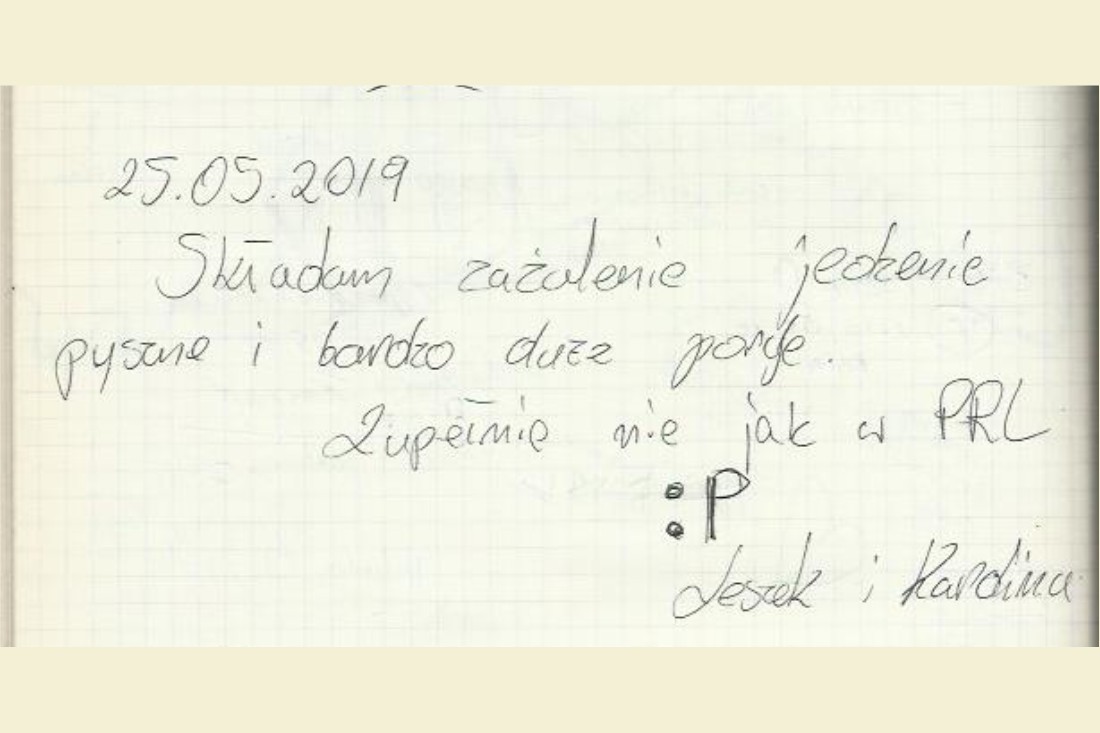 25.05.2019
Składam zażalenie jedzenie
pyszne i bardzo duże porcje.
Zupełnie nie jak w PRL
:P
Leszek i Karolina